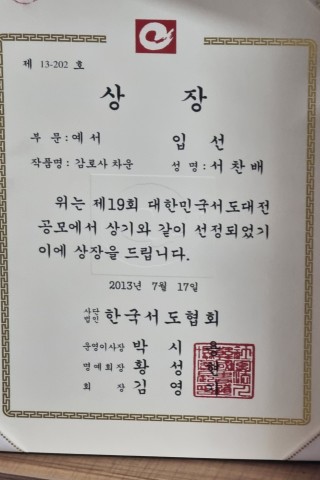 제 13-202 호
상 장
부 문 : 예 서 입 선
작품명 : 감로사 차운 성 명 : 서 찬 배
위는 제19회 대한민국서도대전
공모에서 상기와 같이 선정되었기
이에 상장을 드립니다.
2013년 7월 17일
사단법인 한국서도협회
운영이사장 박 시
명예회장 황 성
회 장 김 영